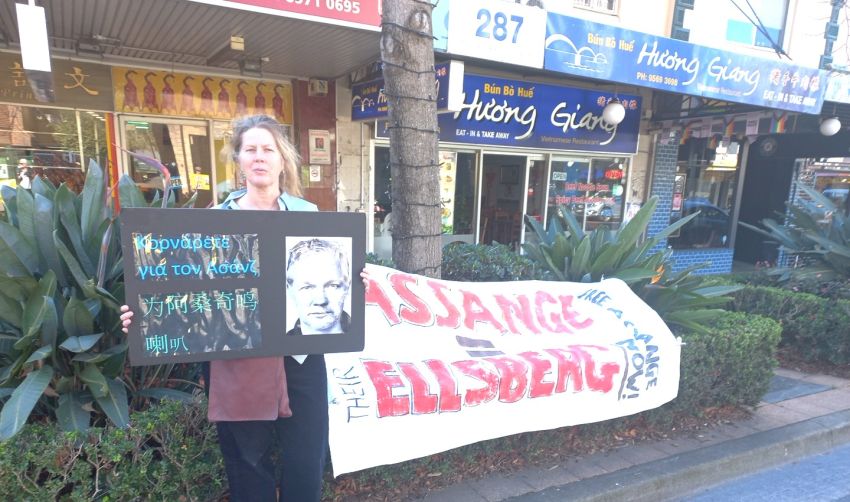 9971 0695
287
Bún Bò Huế
Hương Giang
PH: 9569 3098
Vietnamese Restaurant
EAT - IN & TAKE AWAY
Bún Bò Huế
Hương Giang
EAT - IN & TAKE AWAY
Vietnamese Restaurant
文
OPEN
Beef Noodle Soup
Κορνάρετε
για τον Ασάνζ
为阿桑奇鸣
喇叭
ASSANGE
=
THEIR ELLSBERG
FREE ASSANGE
NOW!